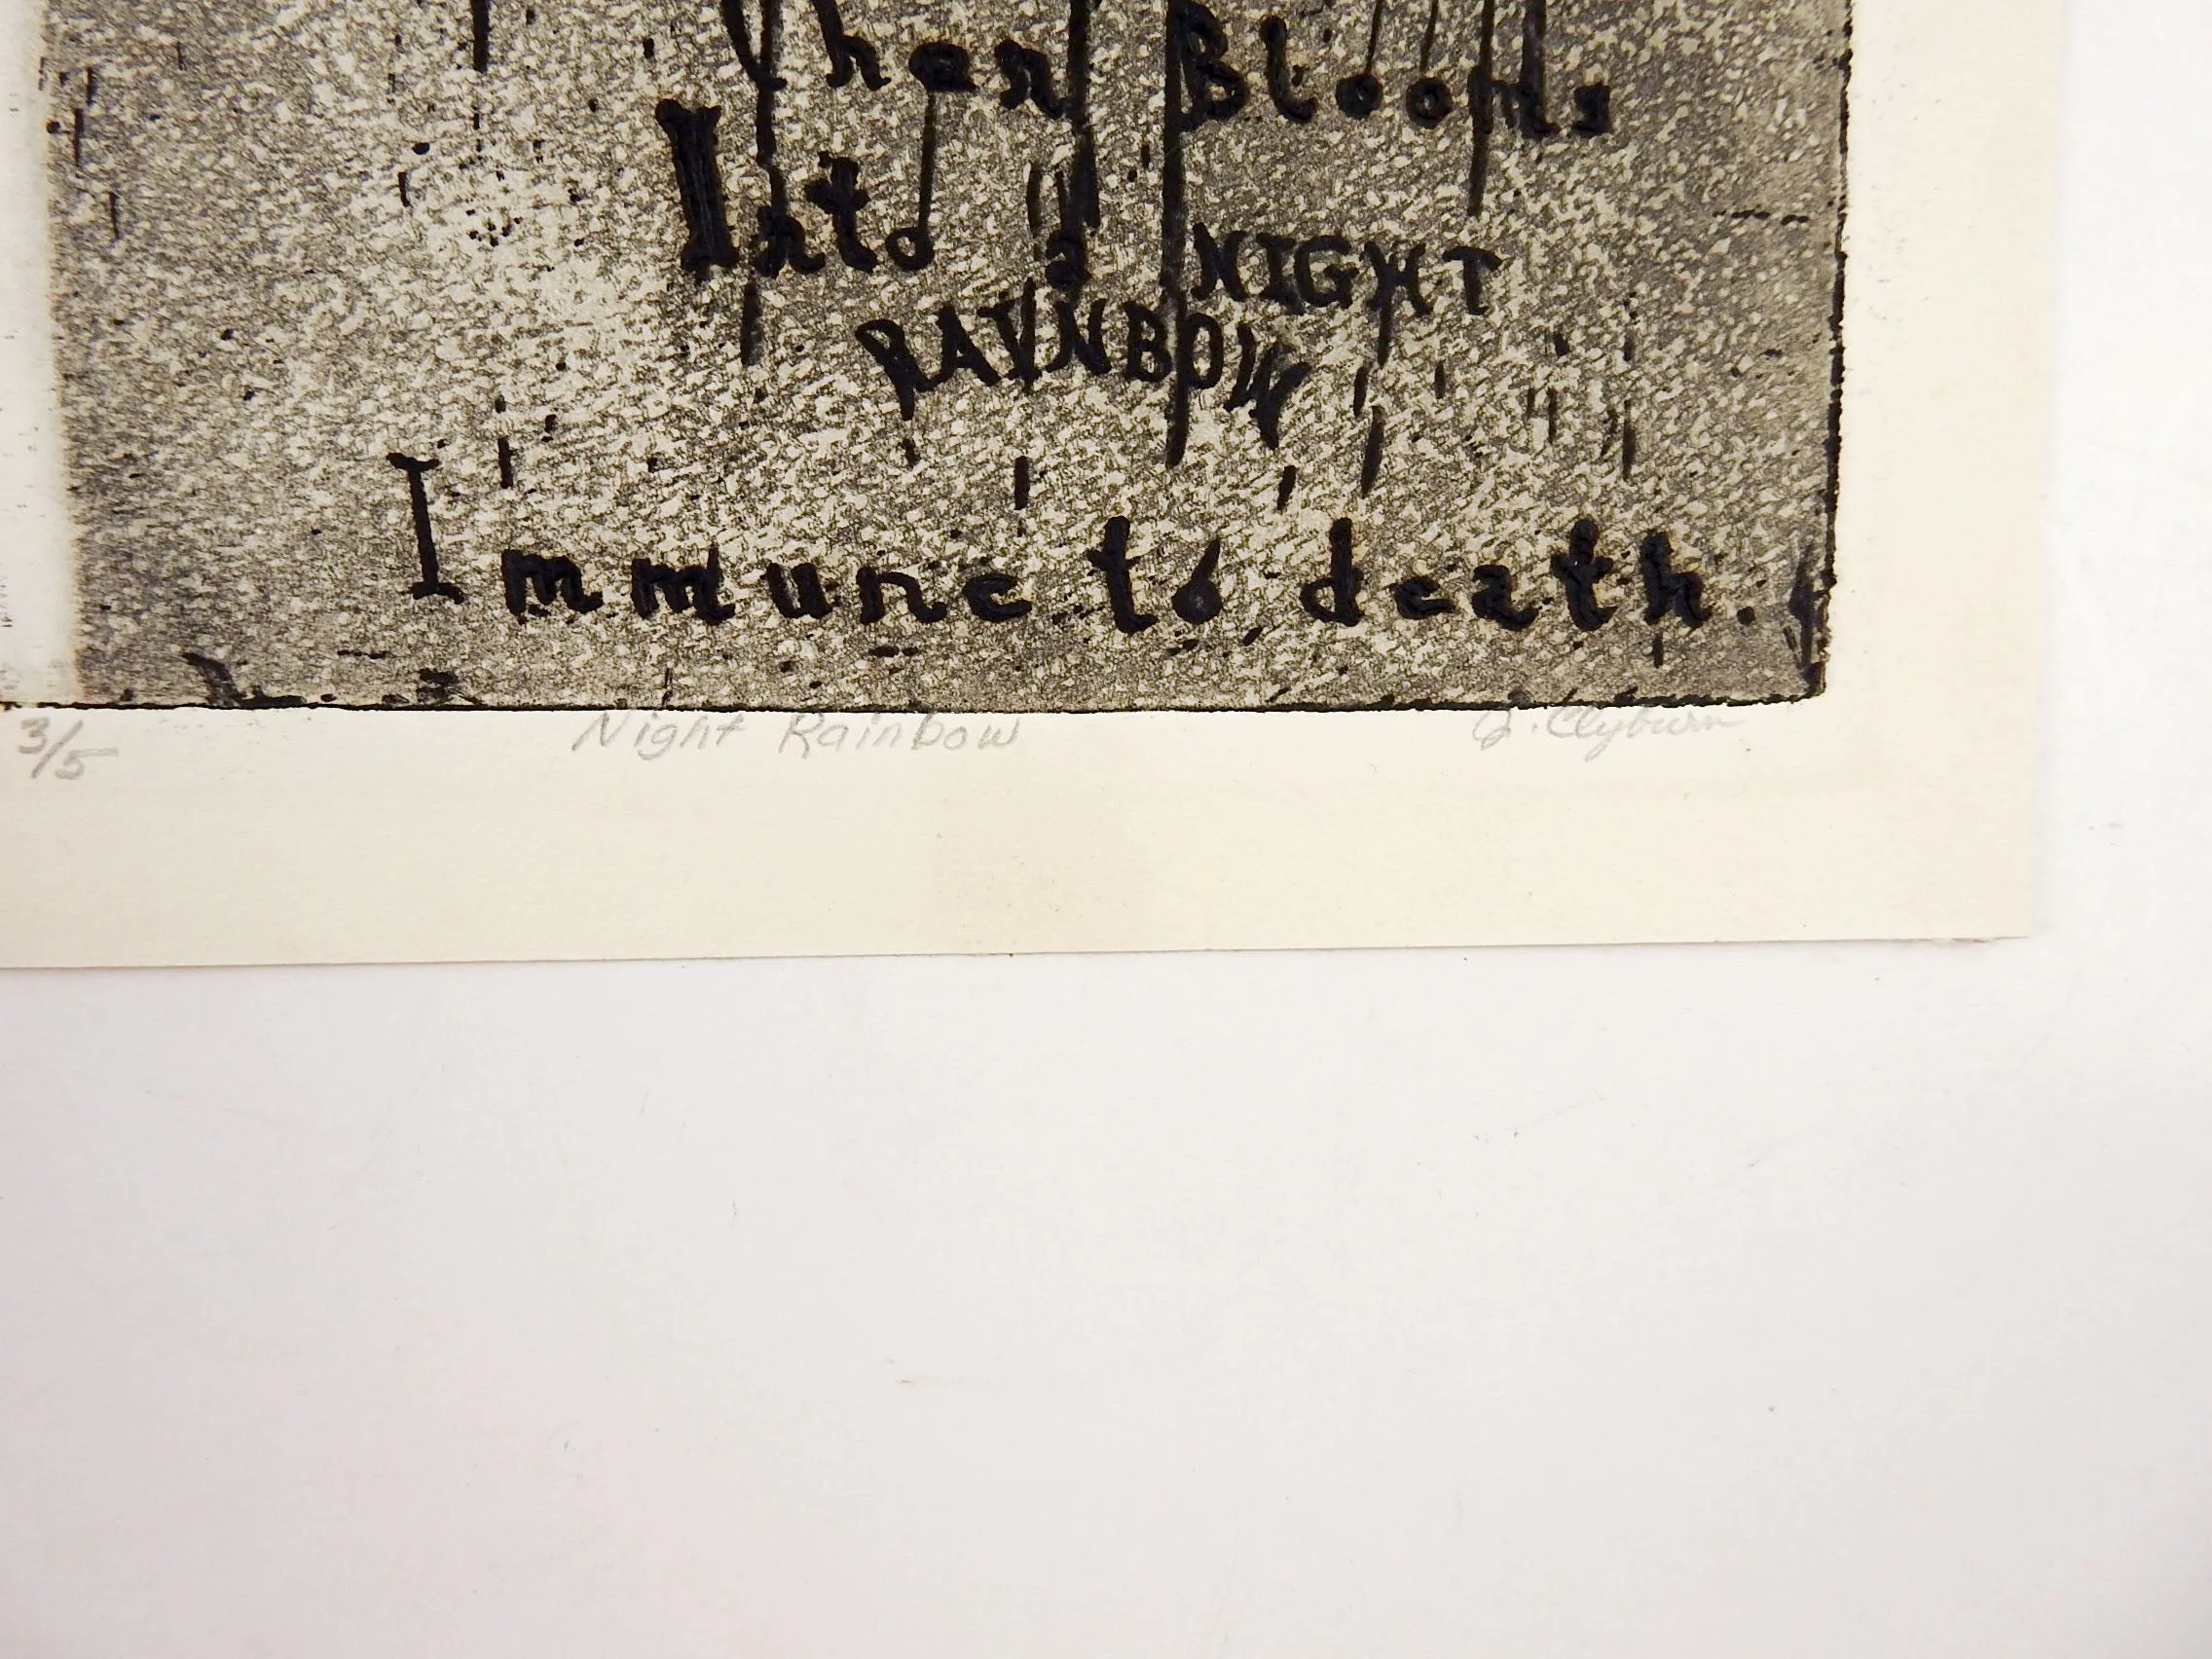 Then Blooms
Into a NIGHT
RAINBOW
Immune to death.
3/5 Night Rainbow J. Clyburn